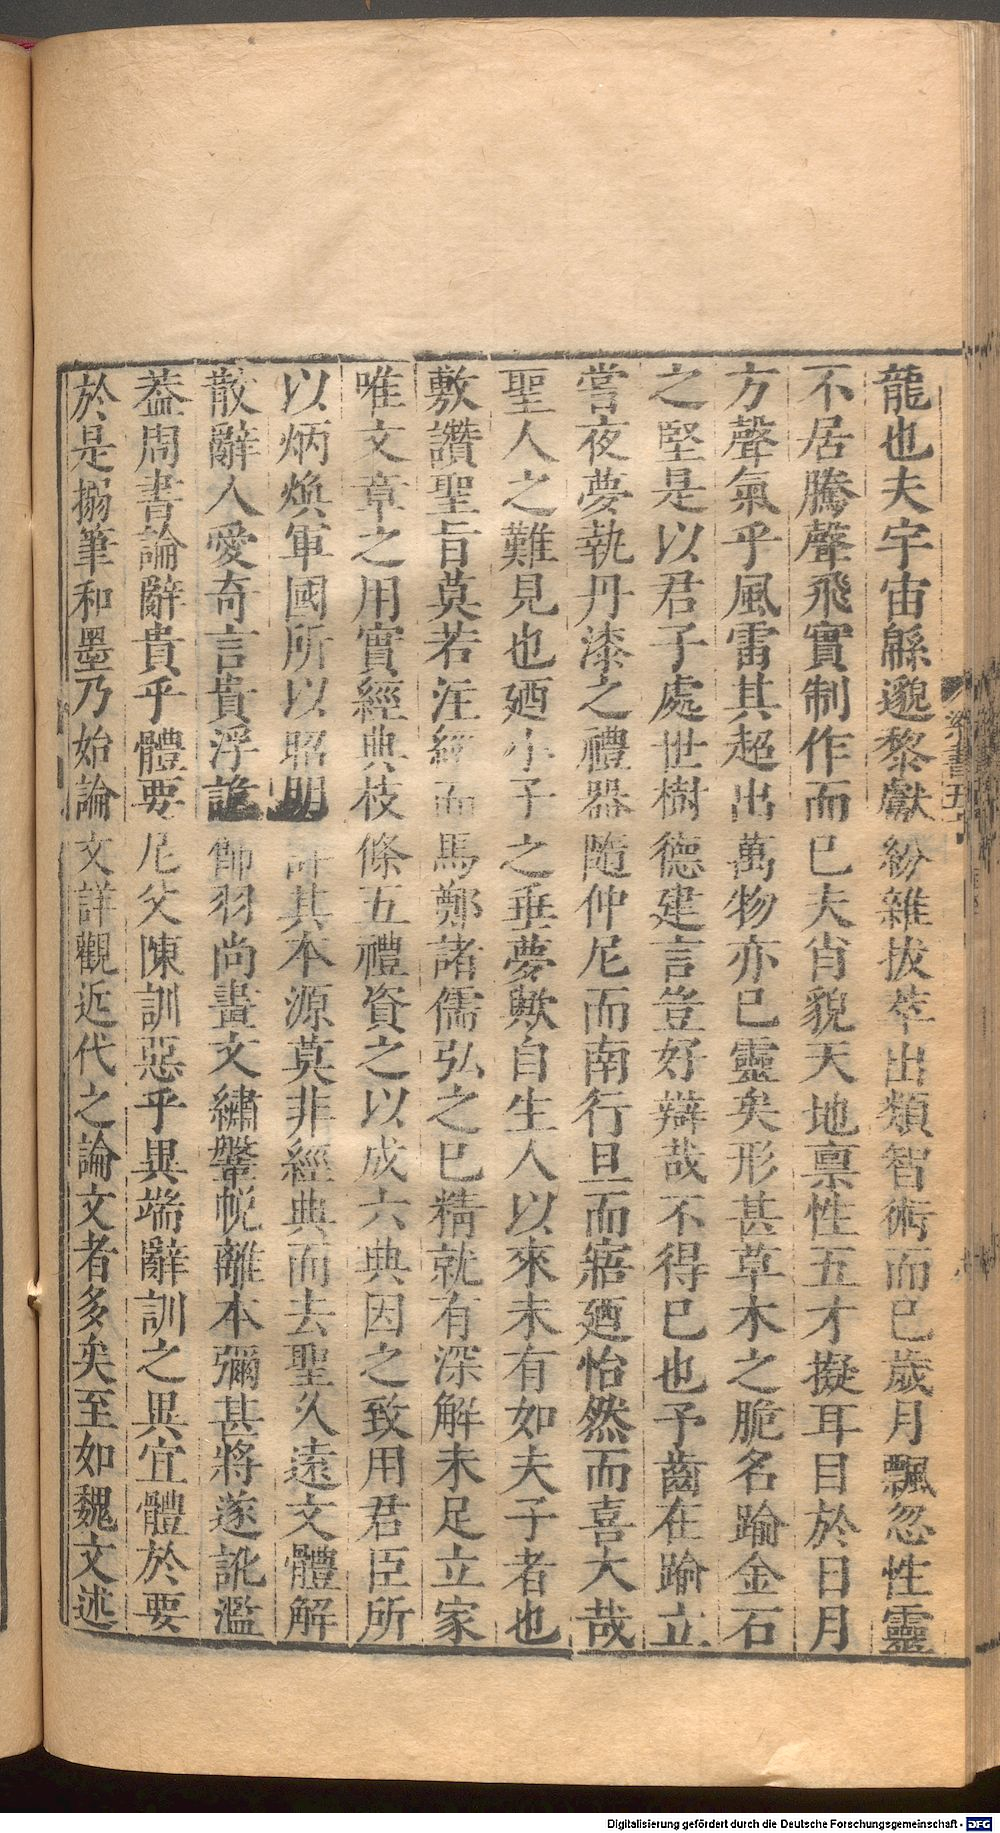 龍也夫宇宙緜邈黎獻紛雜拔萃出類智術而已歲月飄忽性靈
不居騰聲飛實制作而已夫肖貌天地禀性五才擬耳目於日月
方聲氣乎風雷其超出萬物亦已靈矣形甚草木之脆名踰金石
之堅是以君子處世樹德建言豈好辯哉不得已也予齒在踰立
嘗夜夢執丹漆之禮器隨仲尼而南行旦而寤廼怡然而喜大哉
聖人之難見也廼小子之垂夢歟自生人以來未有如夫子者也
敷讚聖旨莫若注經而馬鄭諸儒弘之已精就有深解未足立家
唯文章之用實經典枝條五禮資之以成六典因之致用君臣所
以炳煥軍國所以昭明詳其本源莫非經典而去聖久遠文體解
散辭人愛奇言貴浮詭飾羽尚畫文繡鞶帨離本彌甚將遂訛濫
葢周書論辭貴乎體要尼父陳訓惡乎異端辭訓之異宜體於要
於是搦筆和墨乃始論文詳觀近代之論文者多矣至如魏文述
梁書五十
Digitalisierung gefördert durch die Deutsche Forschungsgemeinschaft - DFG